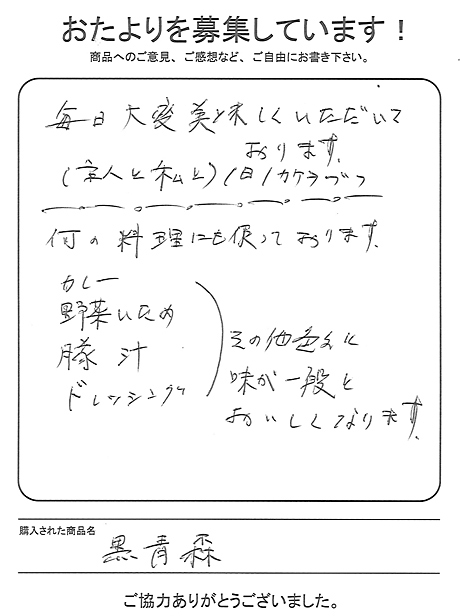 おたよりを募集しています！
商品へのご意見、ご感想など、ご自由にお書き下さい。
毎日大変美味しくいただいて
おります。
(主人と私と)1日1カケラづつ
何の料理にも使っております。
カレー
野菜いため
豚汁
ドレッシング
その他色々に
味が一般と
おいしくなります。
購入された商品名
黒青森
ご協力ありがとうございました。